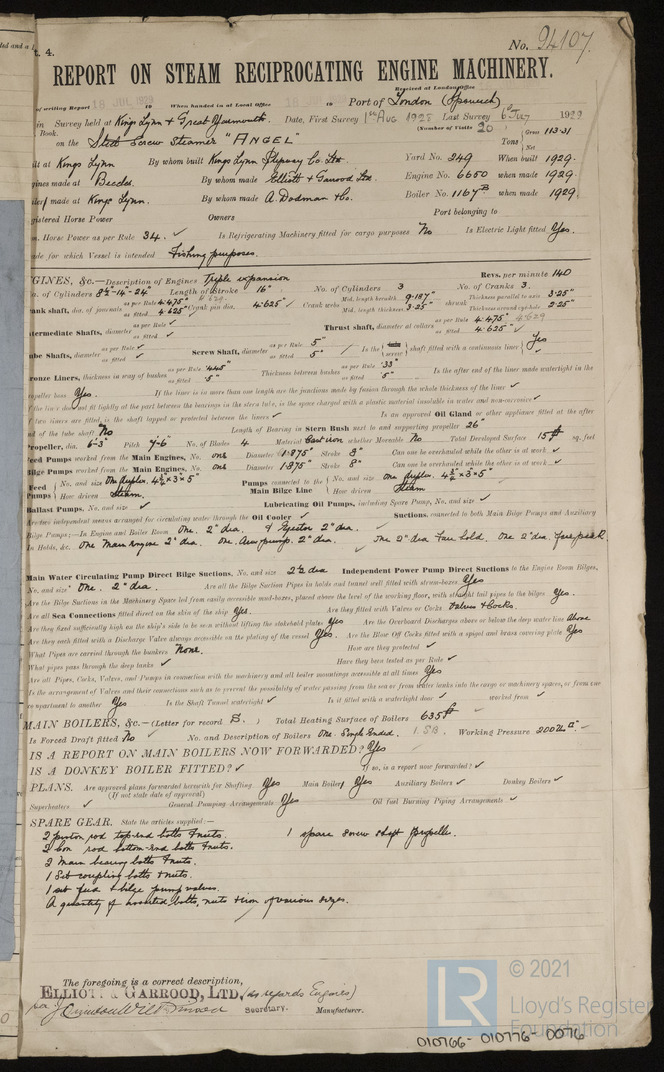 t. 4.
No. 94107.
REPORT ON STEAM RECIPROCATING ENGINE MACHINERY.
Received at London Office
of writing Report 18 JUL 1929 19 When handed in at Local Office 18 JUL 1929 19 Port of London (Ipswich)
in Survey held at Kings Lynn & Great Yarmouth. Date, First Survey 1st Aug 1928 Last Survey 6th July 1929
Book. (Number of Visits 20)
on the Steel Screw Steamer "ANGEL" Tons Gross 113.31 Net
ilt at Kings Lynn By whom built Kings Lynn Slipway Co. Ltd. Yard No. 249 When built 1929.
gines made at Beccles. By whom made Elliott & Garrood Ltd. Engine No. 6650 when made 1929.
made at Kings Lynn. By whom made A. Dodman & Co. Boiler No. 1167B when made 1929
gistered Horse Power Owners Port belonging to
Horse Power as per Rule 34. ✓ Is Refrigerating Machinery fitted for cargo purposes No Is Electric Light fitted Yes.
ade for which Vessel is intended Fishing purposes.
GINES, &c.—Description of Engines Triple expansion Revs. per minute 140
of Cylinders 8½"-14"-24" Length of Stroke 16" No. of Cylinders 3 No. of Cranks 3.
ank shaft, dia. of journals as per Rule 4.475" as fitted 4.625" Crank pin dia. 4.625" Crank webs Mid. length breadth 9.187" Mid. length thickness 3.25" shrunk Thickness parallel to axis 3.25" Thickness around eye-hole 2.25"
termediate Shafts, diameter as per Rule ✓ as fitted ✓ Thrust shaft, diameter at collars as per Rule 4.475" 4.629 as fitted 4.625"
ube Shafts, diameter as per Rule ✓ as fitted ✓ Screw Shaft, diameter as per Rule 5" as fitted 5" Is the screw shaft fitted with a continuous liner Yes
ronze Liners, thickness in way of bushes as per Rule .445 as fitted .5" Thickness between bushes as per Rule .33" as fitted .5" Is the after end of the liner made watertight in the
ropeller boss Yes. If the liner is in more than one length are the junctions made by fusion through the whole thickness of the liner ✓
f the liner does not fit tightly at the part between the bearings in the stern tube, is the space charged with a plastic material insoluble in water and non-corrosive ✓
f two liners are fitted, is the shaft lapped or protected between the liners ✓ Is an approved Oil Gland or other appliance fitted at the after
nd of the tube shaft No Length of Bearing in Stern Bush next to and supporting propeller 26"
ropeller, dia. 6'-3" Pitch 7'-6" No. of Blades 4 Material Cast iron whether Moveable No Total Developed Surface 15 sq. feet
eed Pumps worked from the Main Engines, No. one Diameter 1.875" Stroke 8" Can one be overhauled while the other is at work ✓
ilge Pumps worked from the Main Engines, No. one Diameter 1.875" Stroke 8" Can one be overhauled while the other is at work ✓
eed Pumps No. and size One duplex. 4½"×3"×5" How driven Steam. Pumps connected to the Main Bilge Line No. and size one duplex. How driven Steam
allast Pumps, No. and size ✓ Lubricating Oil Pumps, including Spare Pump, No. and size ✓
Are two independent means arranged for circulating water through the Oil Cooler ✓ Suctions, connected to both Main Bilge Pumps and Auxiliary
Bilge Pumps:—In Engine and Boiler Room One. 2" dia. & Ejector 2" dia.
In Holds, &c. One Main Engine 2" dia. One 2" dia. One 2" dia. Fore hold. One 2" dia. fore peak.
Main Water Circulating Pump Direct Bilge Suctions, No. and size 2½ dia Independent Power Pump Direct Suctions to the Engine Room Bilges,
No. and size One. 2" dia. Are all the Bilge Suction Pipes in holds and tunnel well fitted with strum-boxes Yes
Are the Bilge Suctions in the Machinery Space led from easily accessible mud-boxes, placed above the level of the working floor, with straight tail pipes to the bilges Yes.
Are all Sea Connections fitted direct on the skin of the ship Yes. Are they fitted with Valves or Cocks Valves & Cocks.
Are they fixed sufficiently high on the ship's side to be seen without lifting the stokehold plates Yes Are the Overboard Discharges above or below the deep water line Above
Are they each fitted with a Discharge Valve always accessible on the plating of the vessel Yes. Are the Blow Off Cocks fitted with a spigot and brass covering plate Yes
What Pipes are carried through the bunkers None. How are they protected ✓
What pipes pass through the deep tanks ✓ Have they been tested as per Rule ✓
Are all Pipes, Cocks, Valves, and Pumps in connection with the machinery and all boiler mountings accessible at all times Yes
Is the arrangement of Valves and their connections such as to prevent the possibility of water passing from the sea or from water tanks into the cargo or machinery spaces, or from one
compartment to another Yes Is the Shaft Tunnel watertight ✓ Is it fitted with a watertight door ✓ worked from ✓
MAIN BOILERS, &c.—(Letter for record B. ) Total Heating Surface of Boilers 635
Is Forced Draft fitted No ✓ No. and Description of Boilers One. Single Ended. 1.SB. Working Pressure 200
IS A REPORT ON MAIN BOILERS NOW FORWARDED? Yes
IS A DONKEY BOILER FITTED? ✓ If so, is a report now forwarded? ✓
PLANS. Are approved plans forwarded herewith for Shafting Yes Main Boiler Yes Auxiliary Boilers ✓ Donkey Boilers ✓
(If not state date of approval)
Superheaters ✓ General Pumping Arrangements Yes Oil Fuel Burning Piping Arrangements ✓
SPARE GEAR. State the articles supplied:—
2 piston rod top-end bolts & nuts. 1 spare screw shaft propeller.
2 Con rod bottom-end bolts & nuts.
2 Main bearing bolts & nuts.
1 Set coupling bolts & nuts.
1 set feed & bilge pump valves.
A quantity of assorted bolts, nuts & iron of various sizes.
The foregoing is a correct description,
ELLIOTT & GARROOD, LTD. (as regards Engines)
Secretary. Manufacturer.
LR © 2021
Lloyd's Register
Foundation
010766-010776-0076